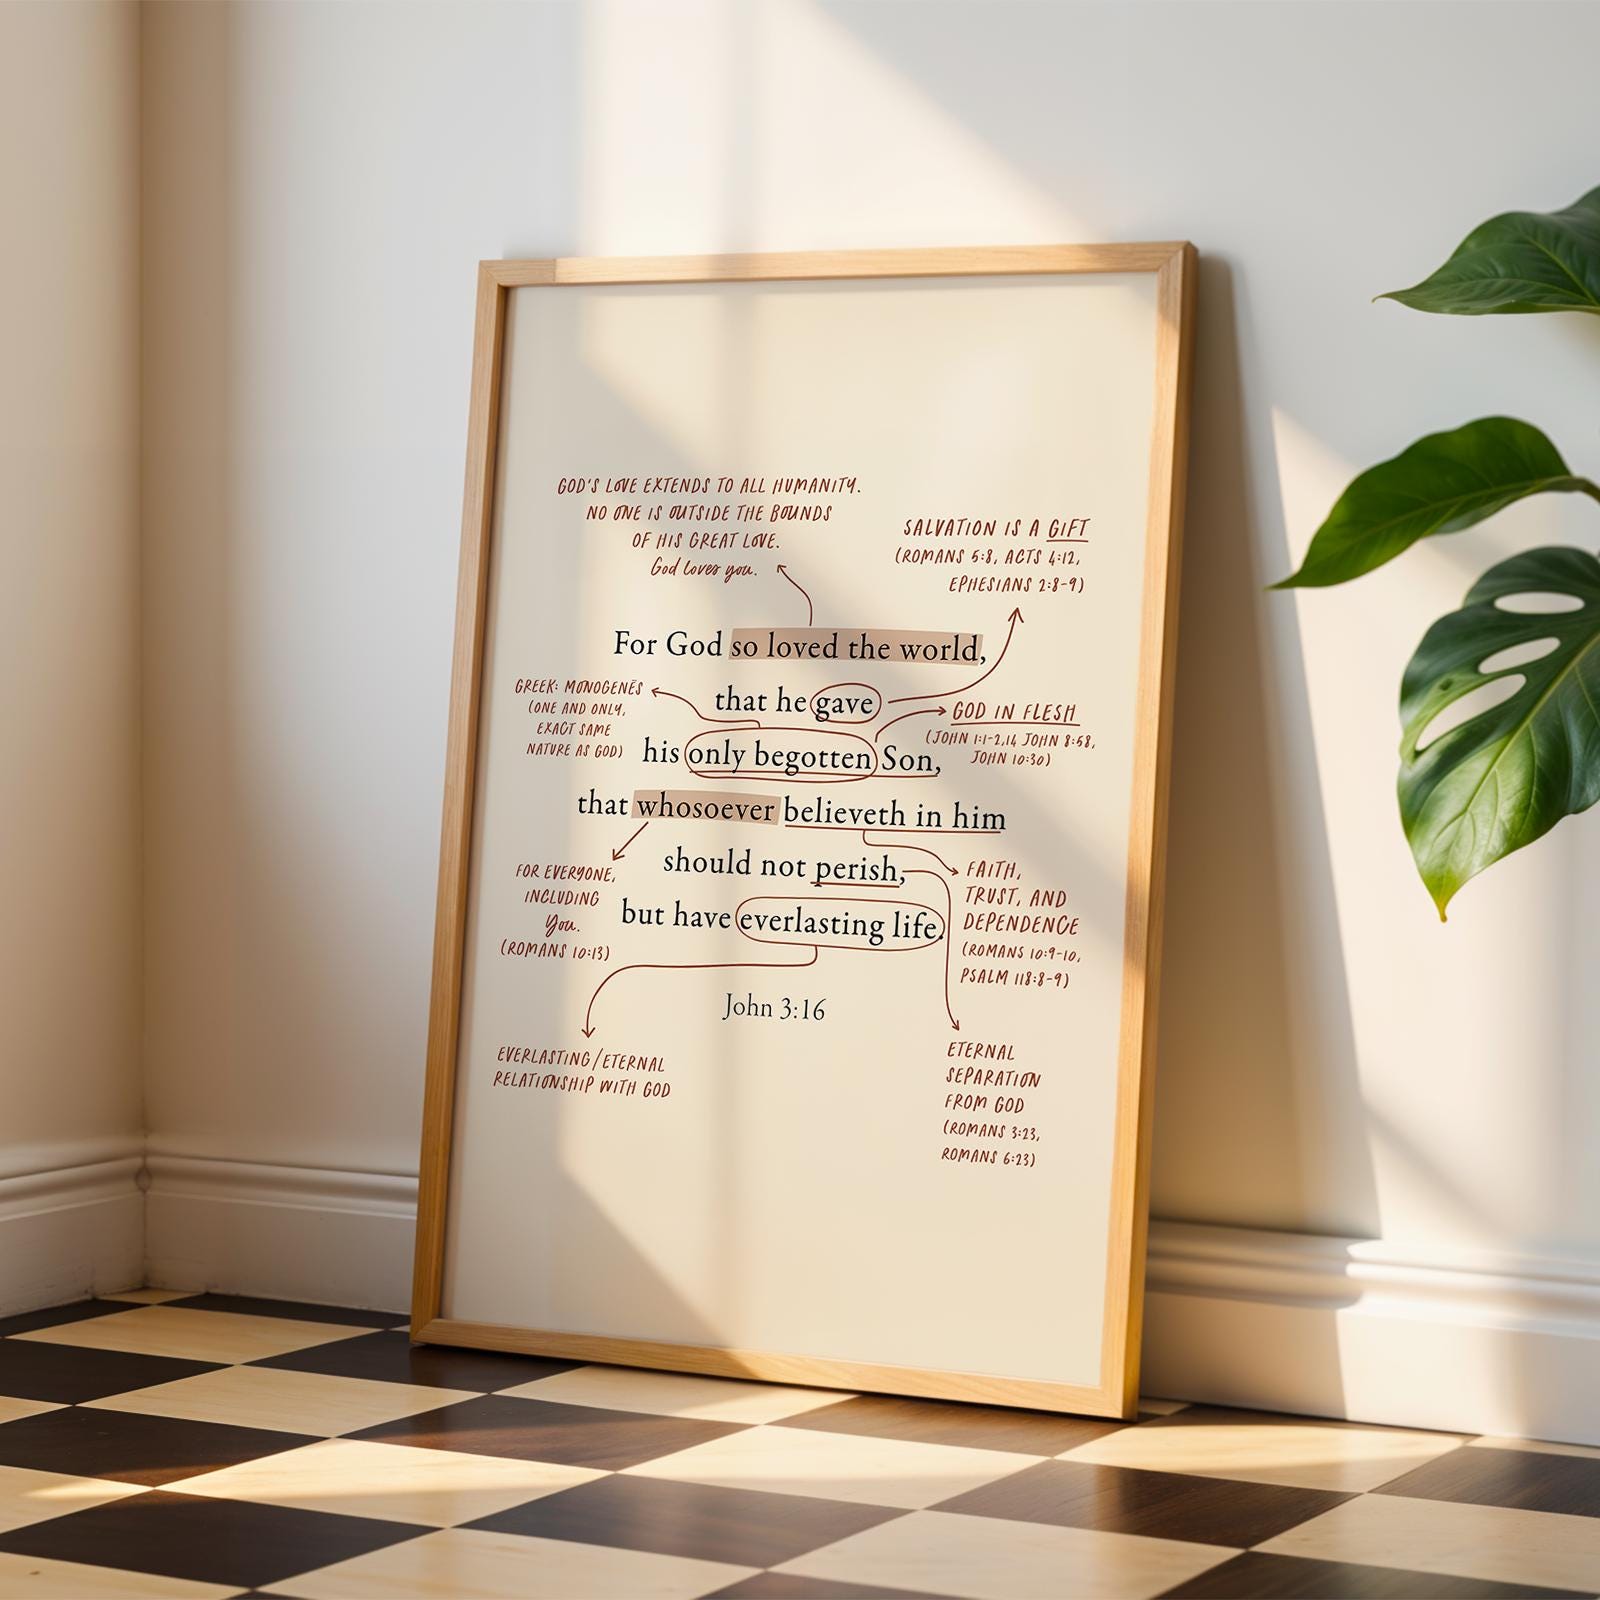 GOD'S LOVE EXTENDS TO ALL HUMANITY.
NO ONE IS OUTSIDE THE BOUNDS
OF HIS GREAT LOVE.
God loves you.
SALVATION IS A GIFT
(ROMANS 5:8, ACTS 4:12,
EPHESIANS 2:8-9)
For God so loved the world,
that he gave
his only begotten Son,
that whosoever believeth in him
should not perish,
but have everlasting life.
John 3:16
GREEK: MONOGENĒS
(ONE AND ONLY,
EXACT SAME
NATURE AS GOD)
GOD IN FLESH
(JOHN 1:1-2,14 JOHN 8:58,
JOHN 10:30)
FOR EVERYONE,
INCLUDING
You.
(ROMANS 10:13)
FAITH,
TRUST, AND
DEPENDENCE
(ROMANS 10:9-10,
PSALM 118:8-9)
EVERLASTING/ETERNAL
RELATIONSHIP WITH GOD
ETERNAL
SEPARATION
FROM GOD
(ROMANS 3:23,
ROMANS 6:23)